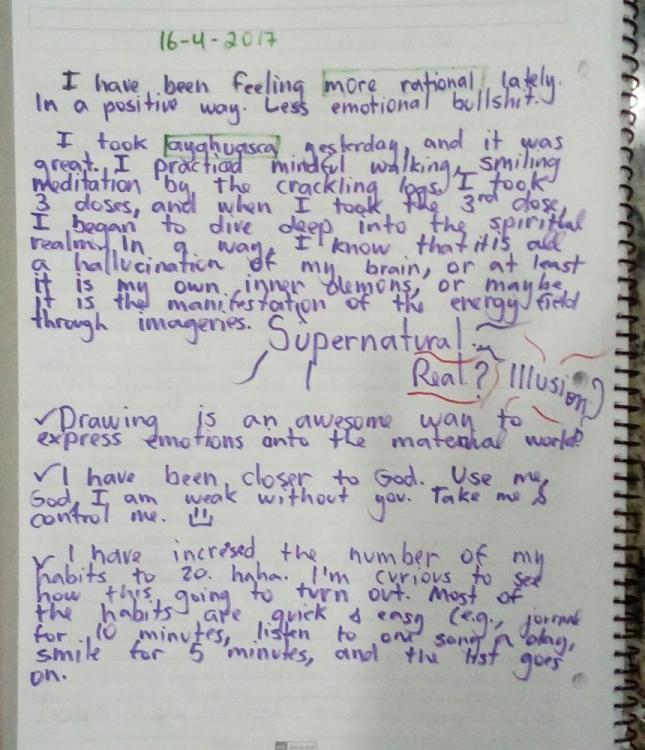 16-4-2017
I have been feeling more rational lately.
In a positive way. Less emotional bullshit.
I took ayahuasca yesterday, and it was
great. I practiced mindful walking, smiling
meditation by the crackling logs. I took
3 doses, and when I took the 3rd dose,
I began to dive deep into the spiritual
realm. In a way, I know that it is all
a hallucination of my brain, or at least
it is my own inner demons, or maybe,
it is the manifestation of the energy field
through imageries.
Supernatural
Real? Illusion?
✓Drawing is an awesome way to
express emotions onto the material world.
✓I have been closer to God. Use me,
God, I am weak without you. Take me &
control me.
✓ I have incresed the number of my
habits to 20. haha. I'm curious to see
how this going to turn out. Most of
the habits are quick & easy (e.g., journal
for 10 minutes, listen to one song a day,
smile for 5 minutes, and the list goes
on.